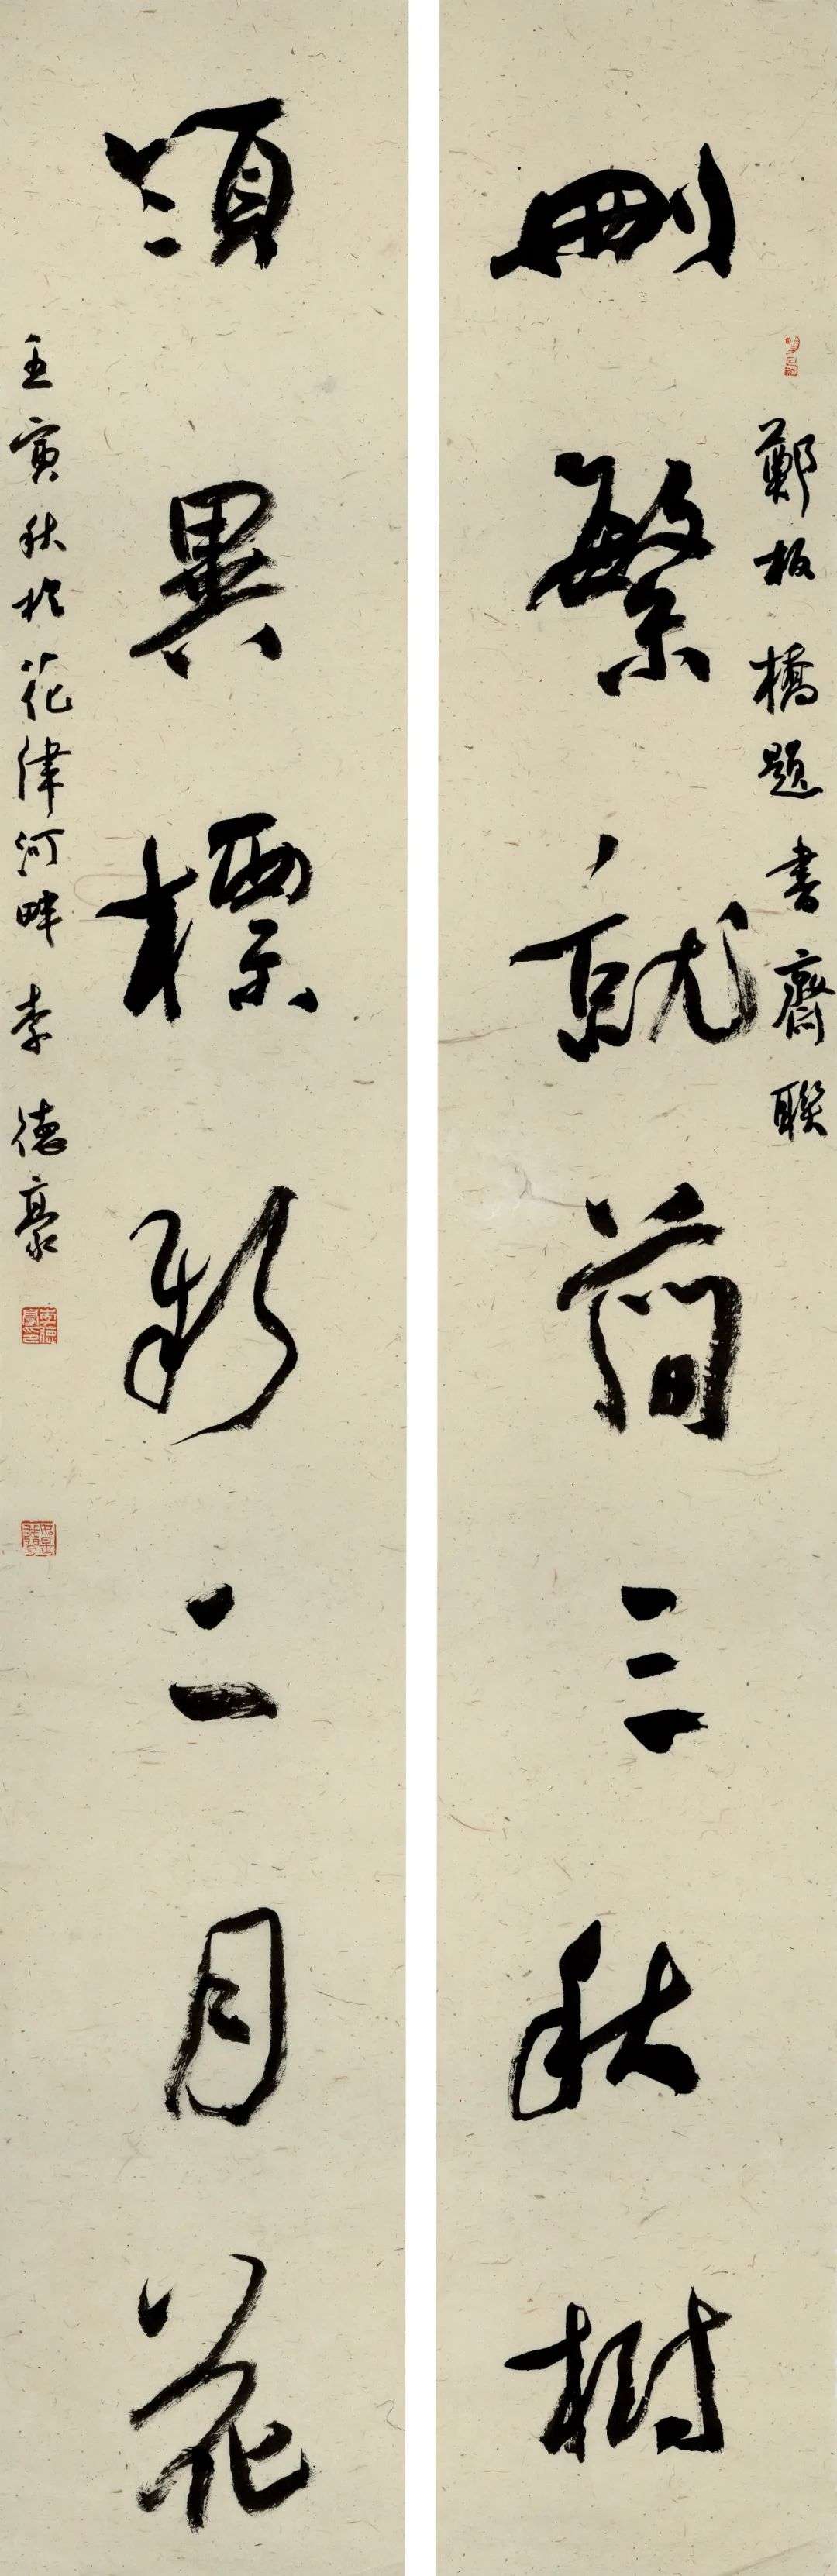 鄭板橋題書齋聯
刪繁就簡三秋樹
領異標新二月花
壬寅秋於花津河畔 李德豪